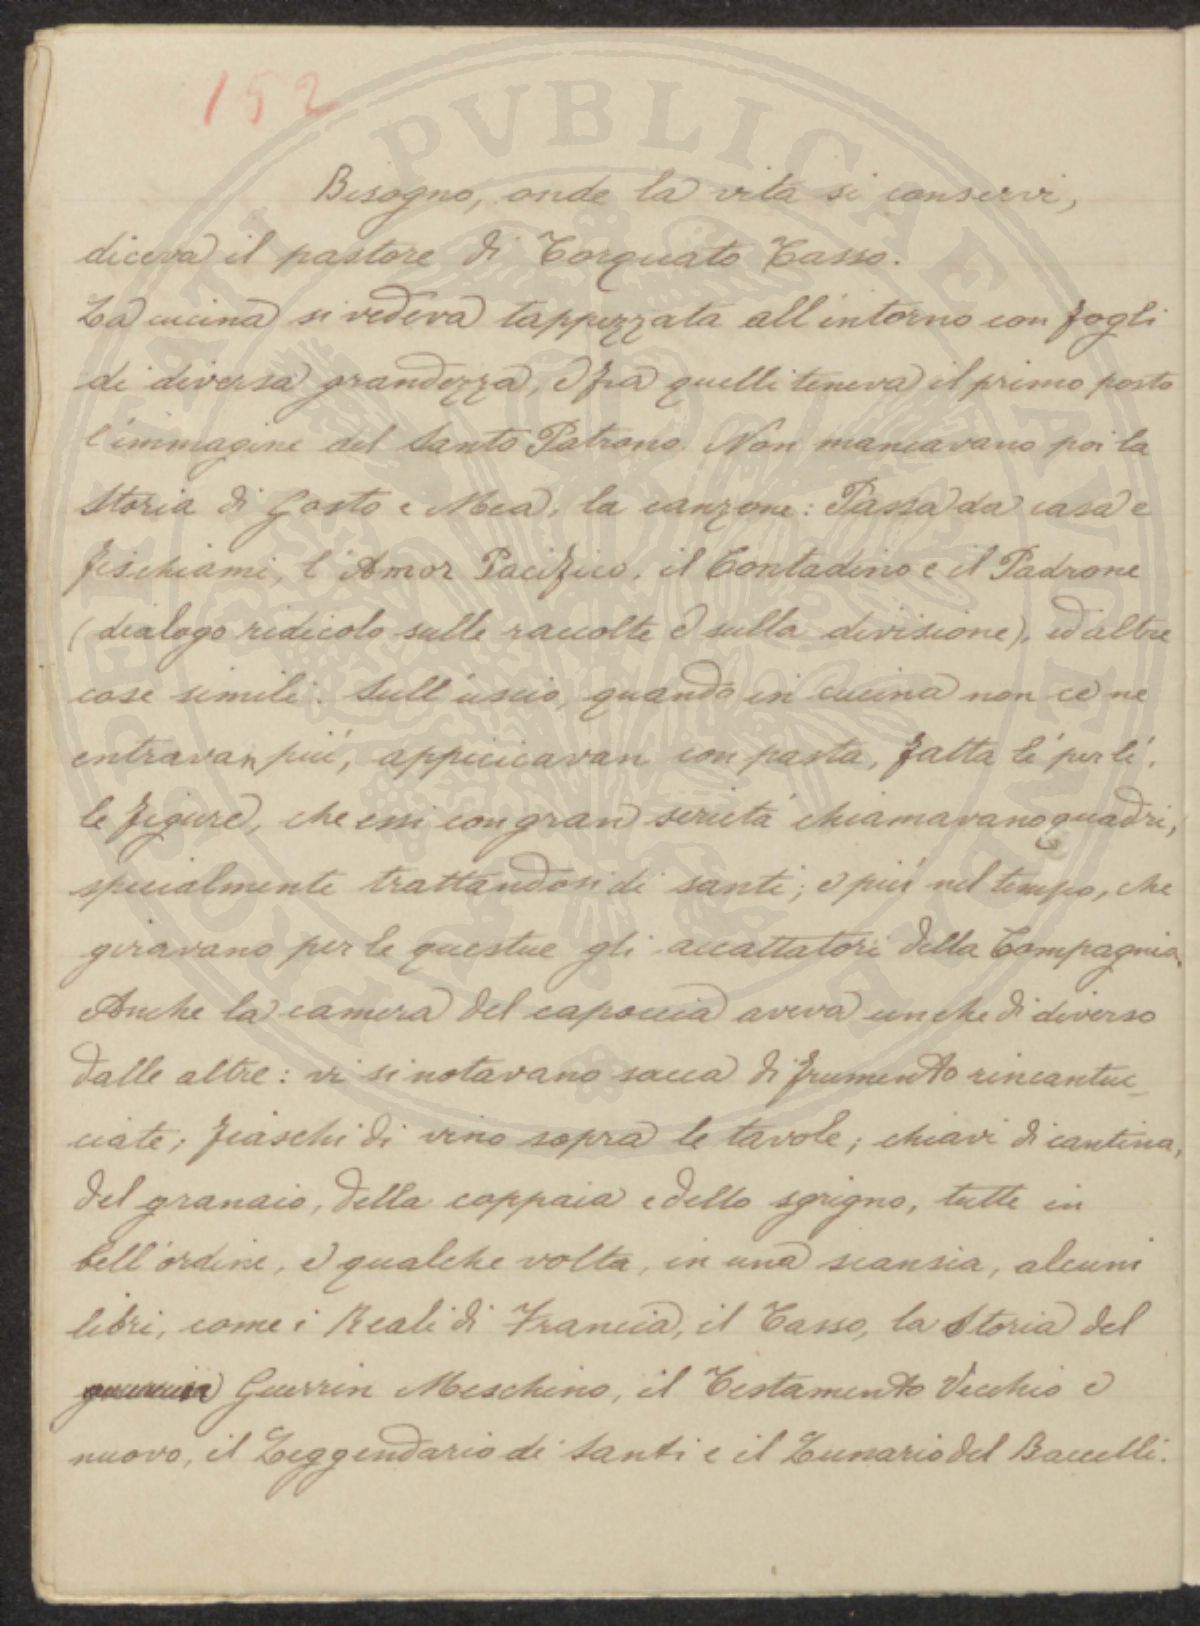 152
Bisogno, onde la vita si conservi,
diceva il pastore di Torquato Tasso.
La cucina si vedeva tappezzata all'intorno con fogli
di diversa grandezza, e fra quelli teneva il primo posto
l'immagine del Santo Patrono. Non mancavano poi la
Storia di Gosto e Mea, la canzone: Passa da casa e
fischiami, l'Amor Pacifico, il Contadino e il Padrone
(dialogo ridicolo sulle raccolte e sulla divisione), ed altre
cose simili. Sull'uscio, quando in cucina non ce ne
entravan più, appiccicavan con pasta, fatta lì per lì,
le figure, che essi con gran serietà chiamavano quadri,
specialmente trattandosi di santi; e più nel tempo, che
giravano per le questue gli accattatori della Compagnia.
Anche la camera del capoccia aveva un che di diverso
dalle altre: vi si notavano sacca di frumento rincantuc-
ciate; fiaschi di vino sopra le tavole; chiavi di cantina,
del granaio, della coppaia e dello sgrigno, tutte in
bell'ordine, e qualche volta, in una scansia, alcuni
libri, come i Reali di Francia, il Tasso, la Storia del
Guerrin Meschino, il Testamento Vecchio e
nuovo, il Leggendario di Santi e il Lunario del Baccelli.
PUBLICAE